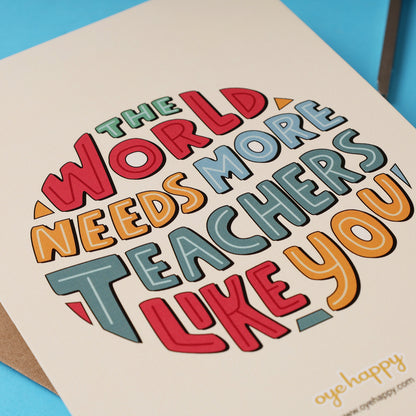 THE
WORLD
NEEDS MORE
TEACHERS
LIKE YOU
oye happy
www.oyehappy.com